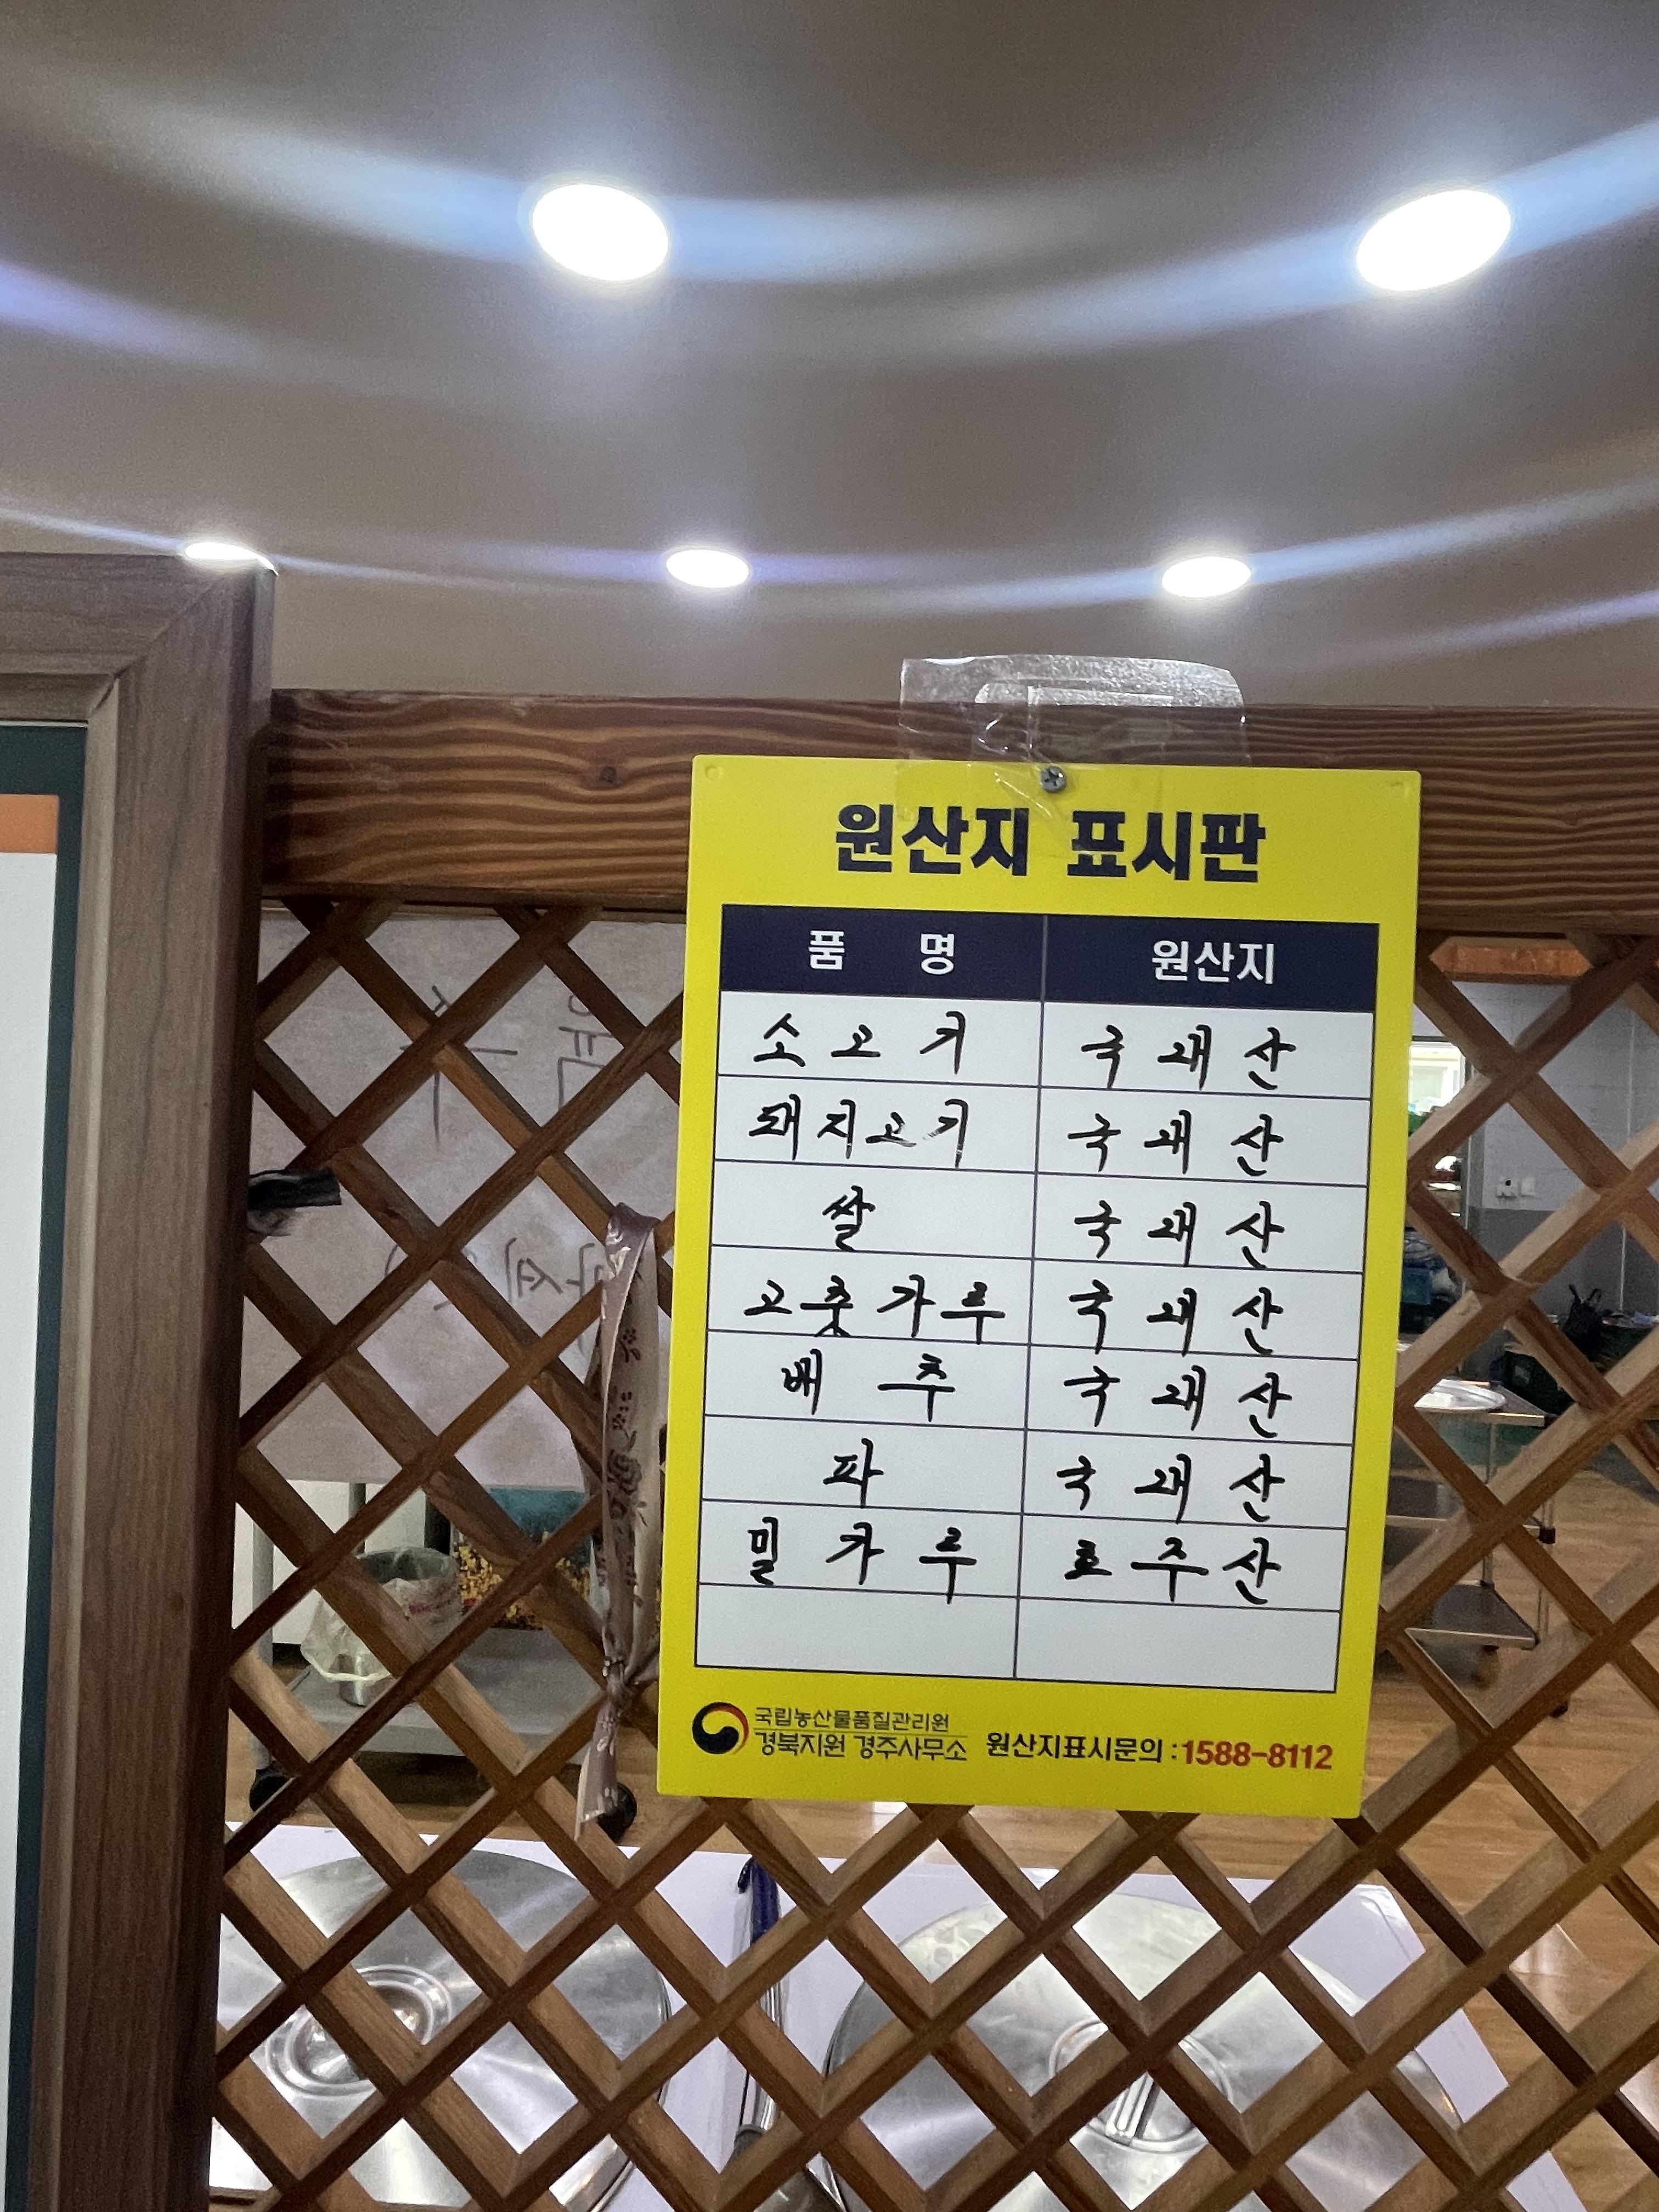 원산지 표시판
품 명 원산지
소고기 국내산
돼지고기 국내산
쌀 국내산
고춧가루 국내산
배추 국내산
파 국내산
밀가루 호주산
국립농산물품질관리원
경북지원 경주사무소 원산지표시문의 : 1588-8112